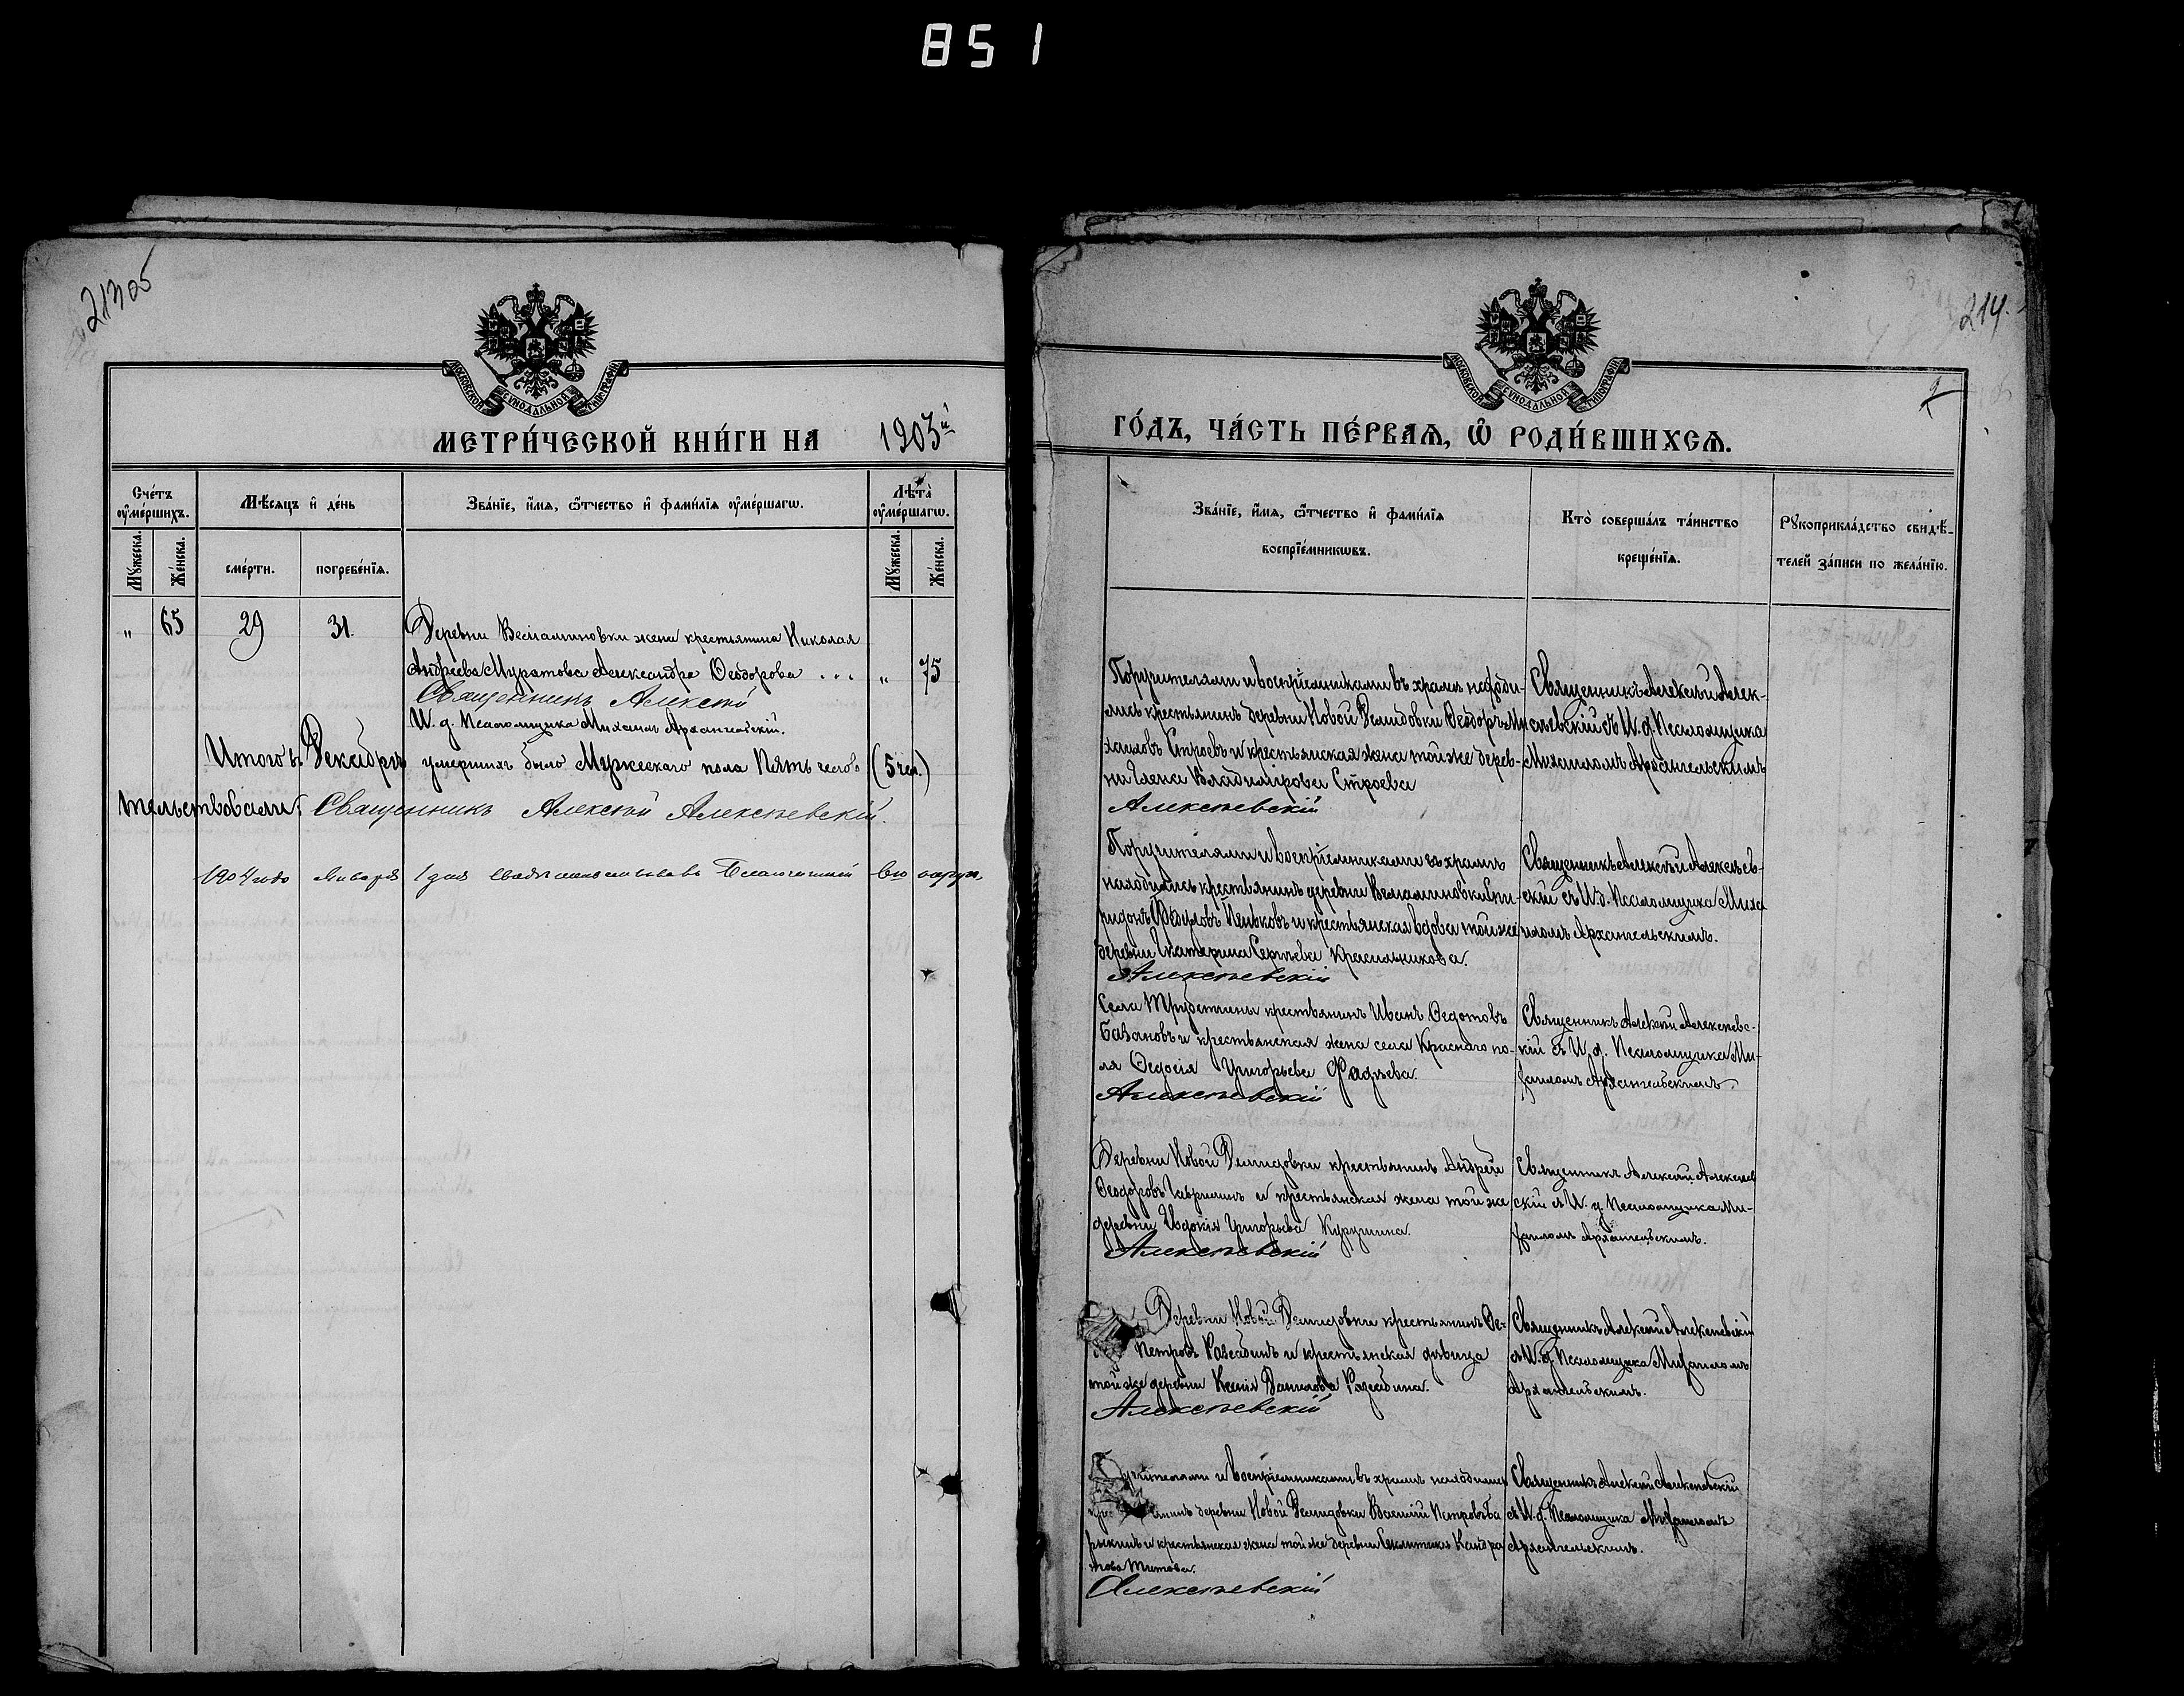 851
213 об
МОСКОВСКОЙ СѴНОДАЛЬНОЙ ТИПОГРАФІИ
МЕТРИ́ЧЕСКОЙ КНИ́ГИ НА 1903й
Счéтъ ᲂу҆ме́ршихъ.
Мѣ́сяцъ и҆ де́нь
Зва́нїе, и҆́мѧ, ѻ҆́тчество и҆ фами́лїѧ ᲂу҆ме́ршагѡ.
Лѣта̀ ᲂу҆ме́ршагѡ.
Мꙋ́жеска.
Же́нска.
сме́рти.
погребе́нїѧ.
Мꙋ́жеска.
Же́нска.
„ 65 29 31. Деревни Веньаминовки жена крестьянина Николая
Андреева Муратова Александра Ѳеодорова . . . „ 75
Священникъ Алексѣй
И. д. Псаломщика Михаилъ Архангельскій.
Итого въ Декабрѣ умершихъ было Мужескаго пола Пять челов (5 чел.)
тельствовали: Священникъ Алексѣй Алексѣевскій.
1904 года Января 1 дня
214.
МОСКОВСКОЙ СѴНОДАЛЬНОЙ ТИПОГРАФІИ
ГО́ДЪ, ЧА́СТЬ ПЕ́РВАѦ, Ѽ РОДИ́ВШИХСѦ.
Зва́нїе, и҆́мѧ, ѻ҆́тчество и҆ фами́лїѧ
воспрїе́мникѡвъ.
Кто̀ соверша́лъ та́инство
креще́нїѧ.
Рꙋкоприкла́дство свидѣ́-
телей за́писи по жела́нїю.
Поручителями и воспріемниками въ храмѣ находи-
лись крестьянинъ деревни Новой Демидовки Ѳеодоръ Ми
хаиловъ Строевъ и крестьянская жена той же дерев-
ни Елена Владимирова Строева
Алексѣевскій
Священникъ Алексѣй Алек-
сѣевскій съ И. д. Псаломщика
Михаиломъ Архангельскимъ
Поручителями и воспріемниками въ храмѣ
находились крестьянинъ деревни Веньаминовки Спи-
ридонъ Пеньковъ и крестьянская вдова той же
деревни Екатерина Сергѣева Красильникова.
Алексѣевскій
Священникъ Алексѣй Алексѣев-
скій съ И. д. Псаломщика Миха
иломъ Архангельскимъ.
Села Трубетчины крестьянинъ Иванъ Ѳедотовъ
Базановъ и крестьянская жена села Краснаго по-
ля Ѳедосія Григорьева Фадѣева.
Алексѣевскій
Священникъ Алексѣй Алексѣевс-
кій съ И. д. Псаломщика Ми-
хаиломъ Архангельскимъ.
Деревни Новой Демидовки крестьянинъ Андрей
Ѳеодоровъ Гаврилинъ и крестьянская жена той же
деревни Евдокія Григорьева Курушина.
Алексѣевскій
Священникъ Алексѣй Алексѣев
скій съ И. д. Псаломщика Ми-
хаиломъ Архангельскимъ.
Деревни Новой Демидовки крестьянинъ Ѳе-
Петровъ Разсадинъ и крестьянская дѣвица
той же деревни Ксенія Данилова Разсадина.
Алексѣевскій
Священникъ Алексѣй Алексѣевскій
съ И. д. Псаломщика Михаиломъ
Архангельскимъ.
и воспріемниками въ храмѣ находились
деревни Новой Демидовки Василій Петровъ Ба
рыкинъ и крестьянская жена той же деревни Кандра
това Титова.
Алексѣевскій
Священникъ Алексѣй Алексѣевскій
съ И. д. Псаломщика Михаиломъ
Архангельскимъ.